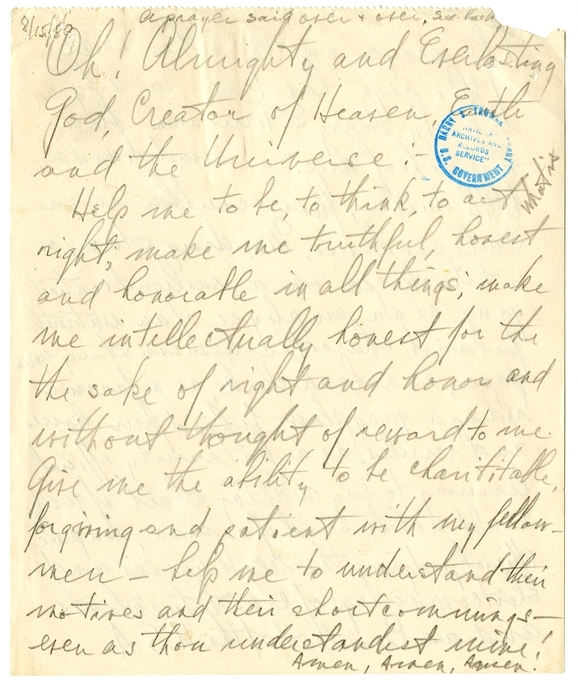 8/15/50
A prayer said over & over, see back
Oh! Almighty and Everlasting
God, Creator of Heaven, Earth
and the Universe:-
Help me to be, to think, to act what is
right; make me truthful, honest
and honorable in all things; make
me intellectually honest for the
the sake of right and honor and
without thought of reward to me.
Give me the ability to be charititable,
forgiving and patient with my fellow-
men - help me to understand their
motives and their shortcommings -
even as thou understandest mine!
Amen, Amen, Amen.
HARRY S. TRUMAN LIBRARY
"NATIONAL
ARCHIVES AND
RECORDS
SERVICE"
U.S. GOVERNMENT